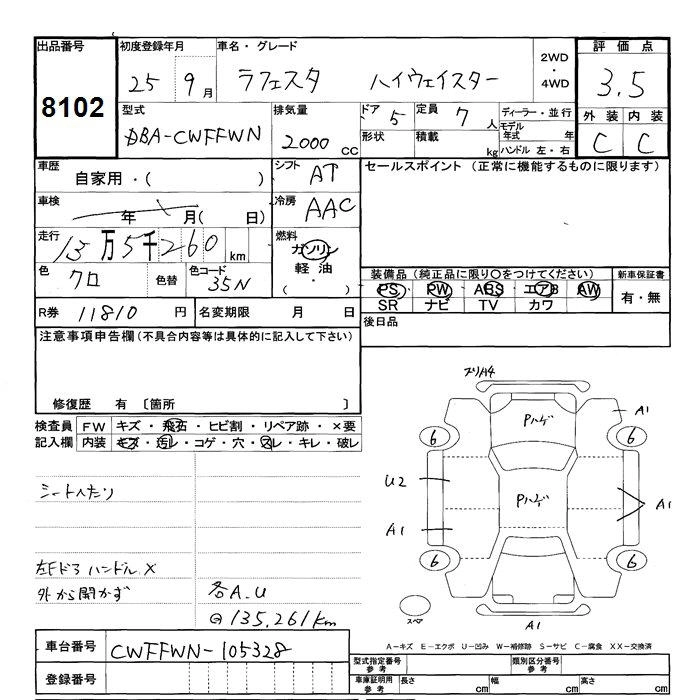 出品番号 初度登録年月 車名・グレード 2WD・4WD 評価点
8102 25 9月 ラフェスタ ハイウェイスター 3.5
型式 排気量 ドア 5 定員 7人 ディーラー・並行 外装 内装
DBA-CWFFWN 2000cc 形状 積載 kg モデル年式 年 ハンドル 左・右 C C
車歴 自家用・( ) シフト AT セールスポイント (正常に機能するものに限ります)
車検 年 月( 日) 冷房 AAC
走行 13万5千260km 燃料 ガソリン 軽油 ( ・ )
装備品(純正品に限り○をつけてください) 新車保証書
色 クロ 色替 色コード 35N PS PW ABS エアB AW 有・無
SR ナビ TV カワ
R券 11810円 名変期限 月 日 後日品
注意事項申告欄(不具合内容等は具体的に記入して下さい)
修復歴 有 〔箇所 〕
検査員 FW キズ・飛石・ヒビ割・リペア跡・×要
記入欄 内装 キズ・汚レ・コゲ・穴・スレ・キレ・破レ
スリA4
Pハゲ
A1
6 6
シートヘたり
U2
Pハゲ
A1 A1
6 6
左Fドア ハンドル X
外から開かず
各A.U
@135,261km
スペア
A1
A-キズ E-エクボ U-凹み W-補修跡 S-サビ C-腐食 XX-交換済
車台番号 CWFFWN-105328
型式指定番号 参考 類別区分番号 参考
登録番号
車庫証明用 参考 長さ cm 幅 cm 高さ cm